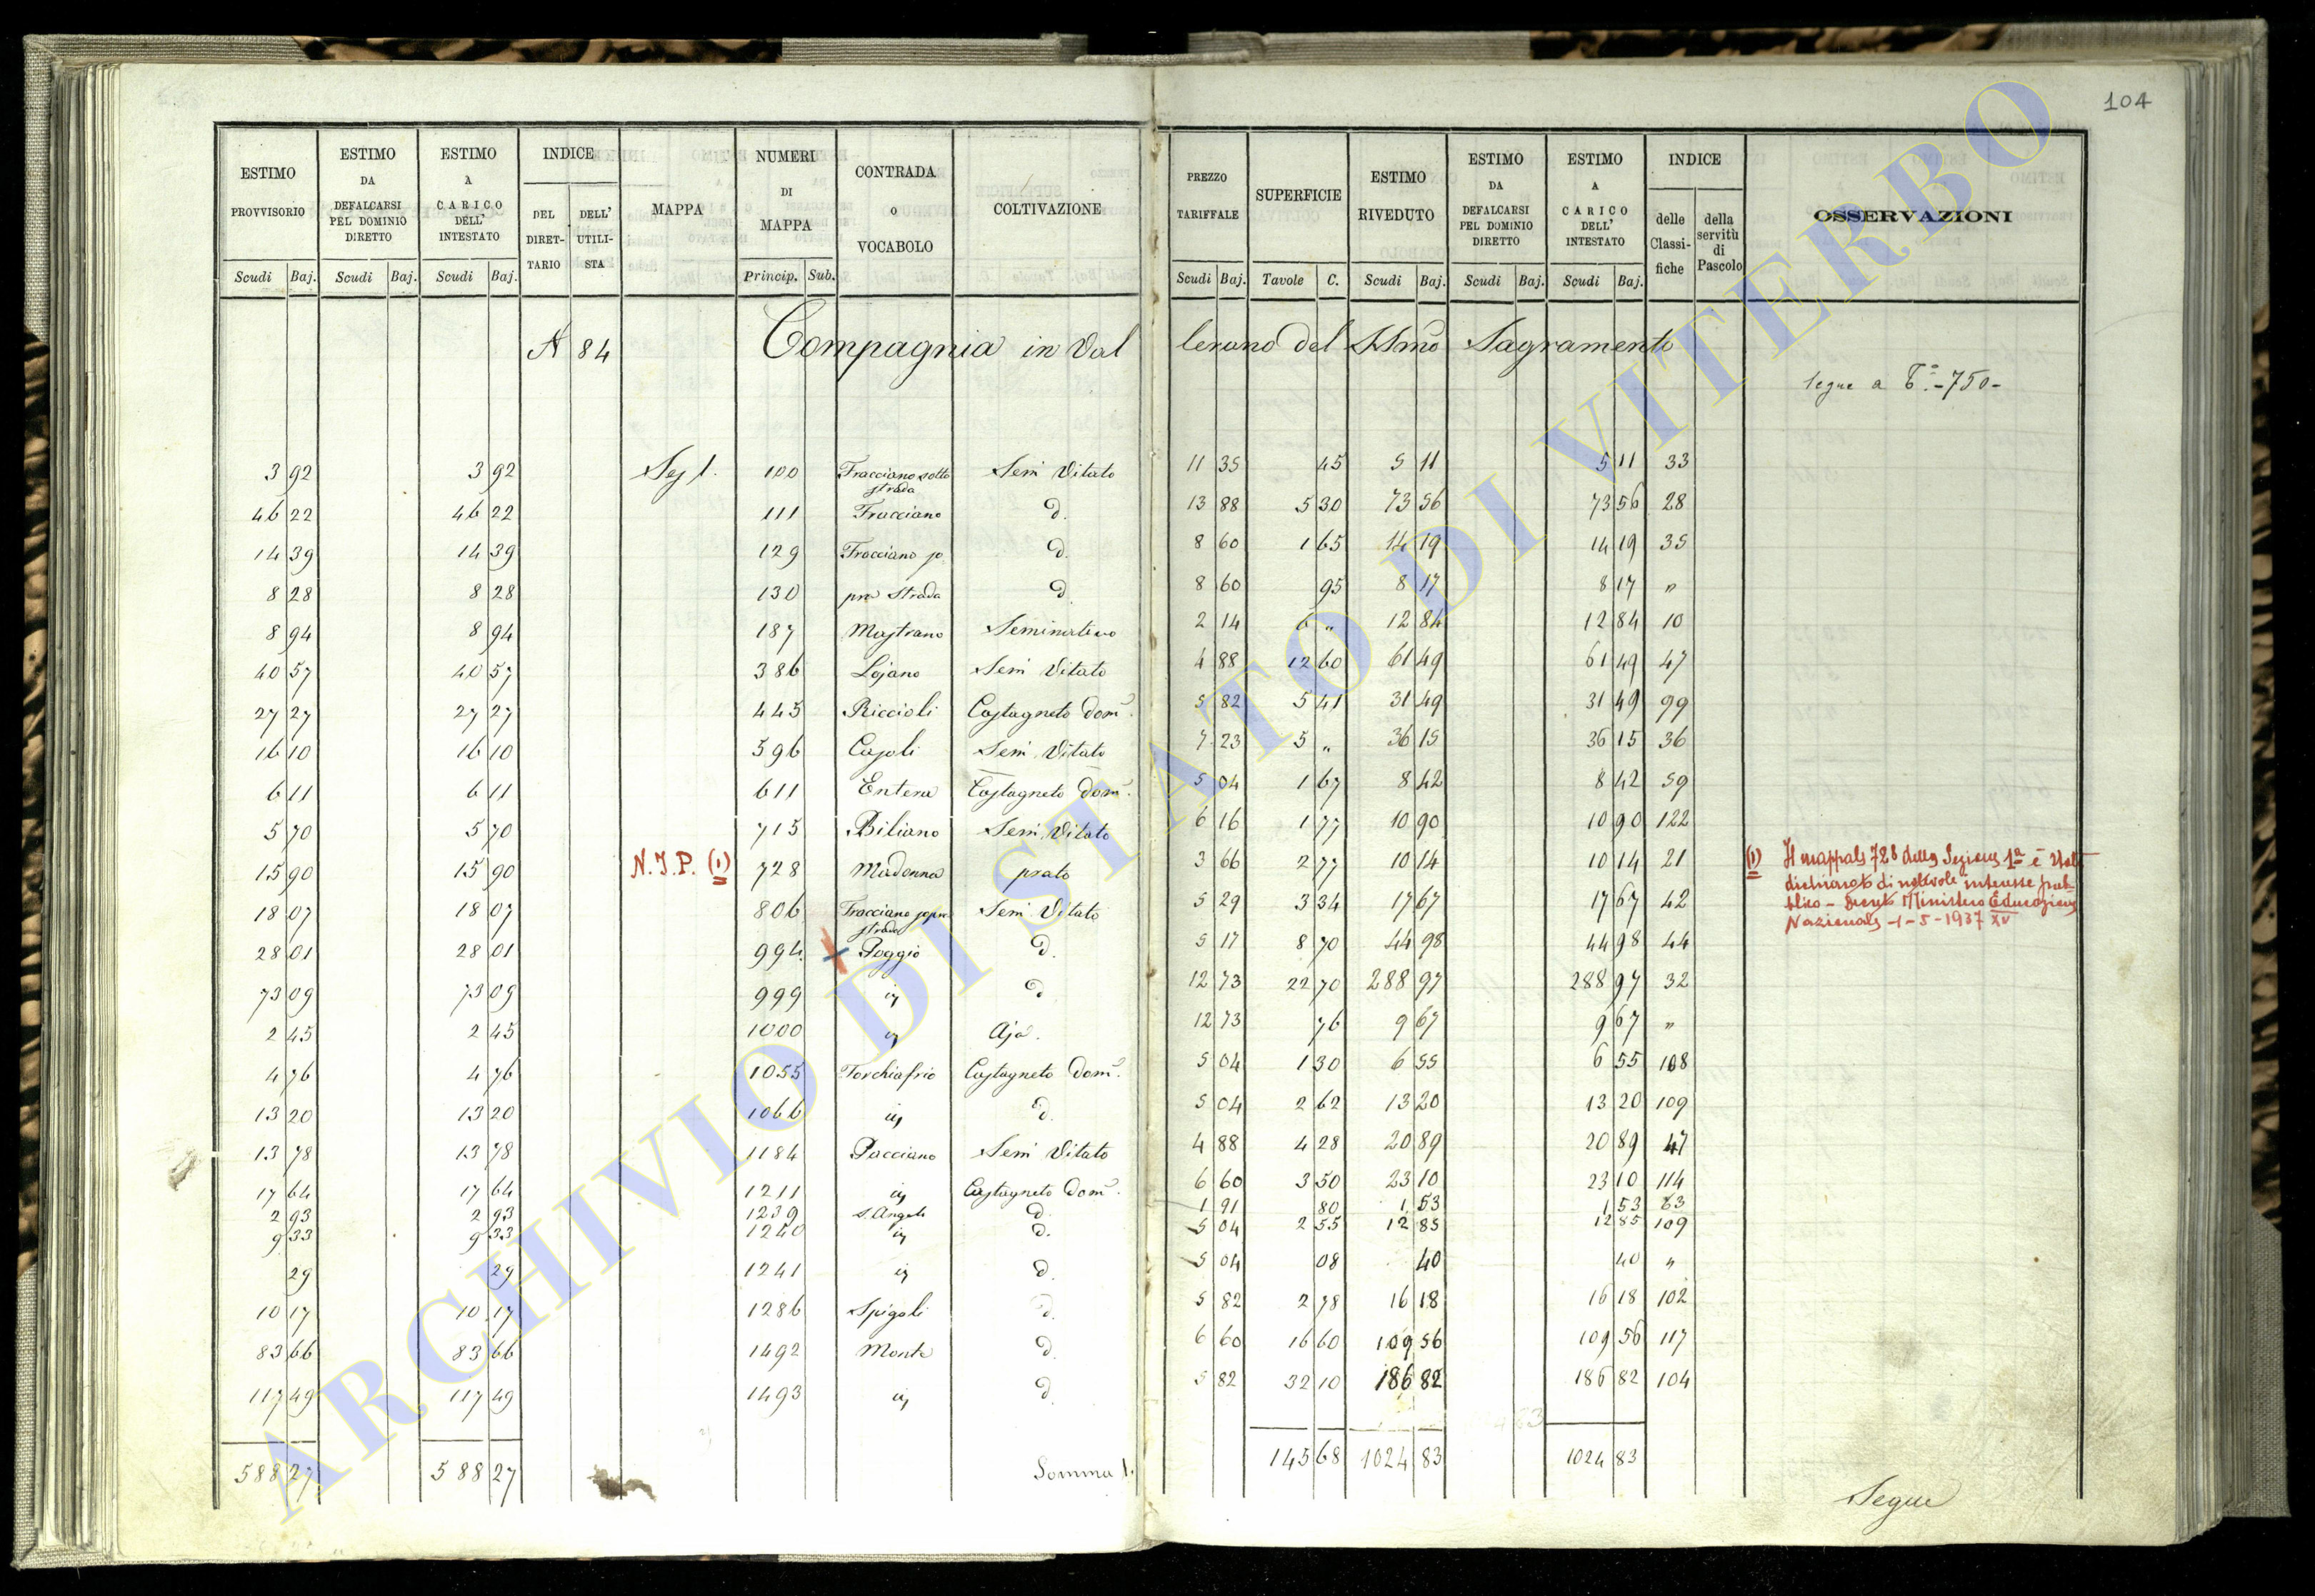 104
ESTIMO PROVVISORIO
ESTIMO DA DEFALCARSI PEL DOMINIO DIRETTO
ESTIMO A CARICO DELL' INTESTATO
INDICE
DEL DIRET-TARIO
DELL' UTILI-STA
MAPPA
NUMERI DI MAPPA
CONTRADA O VOCABOLO
COLTIVAZIONE
PREZZO TARIFFALE
SUPERFICIE
ESTIMO RIVEDUTO
ESTIMO DA DEFALCARSI PEL DOMINIO DIRETTO
ESTIMO A CARICO DELL' INTESTATO
INDICE
delle Classi-fiche
della servitù di Pascolo
OSSERVAZIONI
Scudi Baj. Scudi Baj. Scudi Baj. Princip. Sub. Scudi Baj. Tavole C. Scudi Baj. Scudi Baj. Scudi Baj.
A 84 Compagnia in Val lerano del SSmo Sagramento
Segue a T.º - 750 -
3 92 3 92 Sez 1. 100 Fracciano sotto strada Semi Vitato 11 35 45 5 11 5 11 33
46 22 46 22 111 Fracciano d. 13 88 5 30 73 56 73 56 28
14 39 14 39 129 Fracciano so d. 8 60 1 65 14 19 14 19 35
8 28 8 28 130 pra strada d 8 60 95 8 17 8 17 "
8 94 8 94 187 Mastrano Seminativo 2 14 6 " 12 84 12 84 10
40 57 40 57 386 Lojano Semi Vitato 4 88 12 60 61 49 61 49 47
27 27 27 27 445 Riccioli Castagneto dom. 5 82 5 41 31 49 31 49 99
16 10 16 10 596 Casoli Semi Vitato 7 23 5 " 36 15 36 15 36
6 11 6 11 611 Entera Castagneto dom. 5 04 1 67 8 42 8 42 59
5 70 5 70 715 Biliano Semi Vitato 6 16 1 77 10 90 10 90 122
15 90 15 90 N.I.P. (1) 728 Madonna prato 3 66 2 77 10 14 10 14 21
(1) Il mappale 728 della Sezione 1a è stato
dichiarato di notevole interesse pub-
blico - Decreto Ministero Educazione
Nazionale - 1 - 5 - 1937 XV
18 07 18 07 806 Fracciano sopra strada Semi Vitato 5 29 3 34 17 67 17 67 42
28 01 28 01 994 Poggio d. 5 17 8 70 44 98 44 98 44
73 09 73 09 999 iy d 12 73 22 70 288 97 288 97 32
2 45 2 45 1000 iy Aja. 12 73 76 9 67 9 67 "
4 76 4 76 1055 Torchiafrio Castagneto dom. 5 04 1 30 6 55 6 55 108
13 20 13 20 1066 iy d. 5 04 2 62 13 20 13 20 109
13 78 13 78 1184 Pacciano Semi Vitato 4 88 4 28 20 89 20 89 47
17 64 17 64 1211 iy Castagneto dom. 6 60 3 50 23 10 23 10 114
2 93 2 93 1239 S. Angelo d 1 91 80 1 53 1 53 63
9 33 9 33 1240 iy d. 5 04 2 55 12 85 12 85 109
29 29 1241 iy d. 5 04 08 40 40 "
10 17 10 17 1286 Spigoli d. 5 82 2 78 16 18 16 18 102
83 66 83 66 1492 Monte d. 6 60 16 60 109 56 109 56 117
117 49 117 49 1493 iy d. 5 82 32 10 186 82 186 82 104
588 27 588 27 Somma 1. 145 68 1024 83 1024 83
Segue
ARCHIVIO DI STATO DI VITERBO